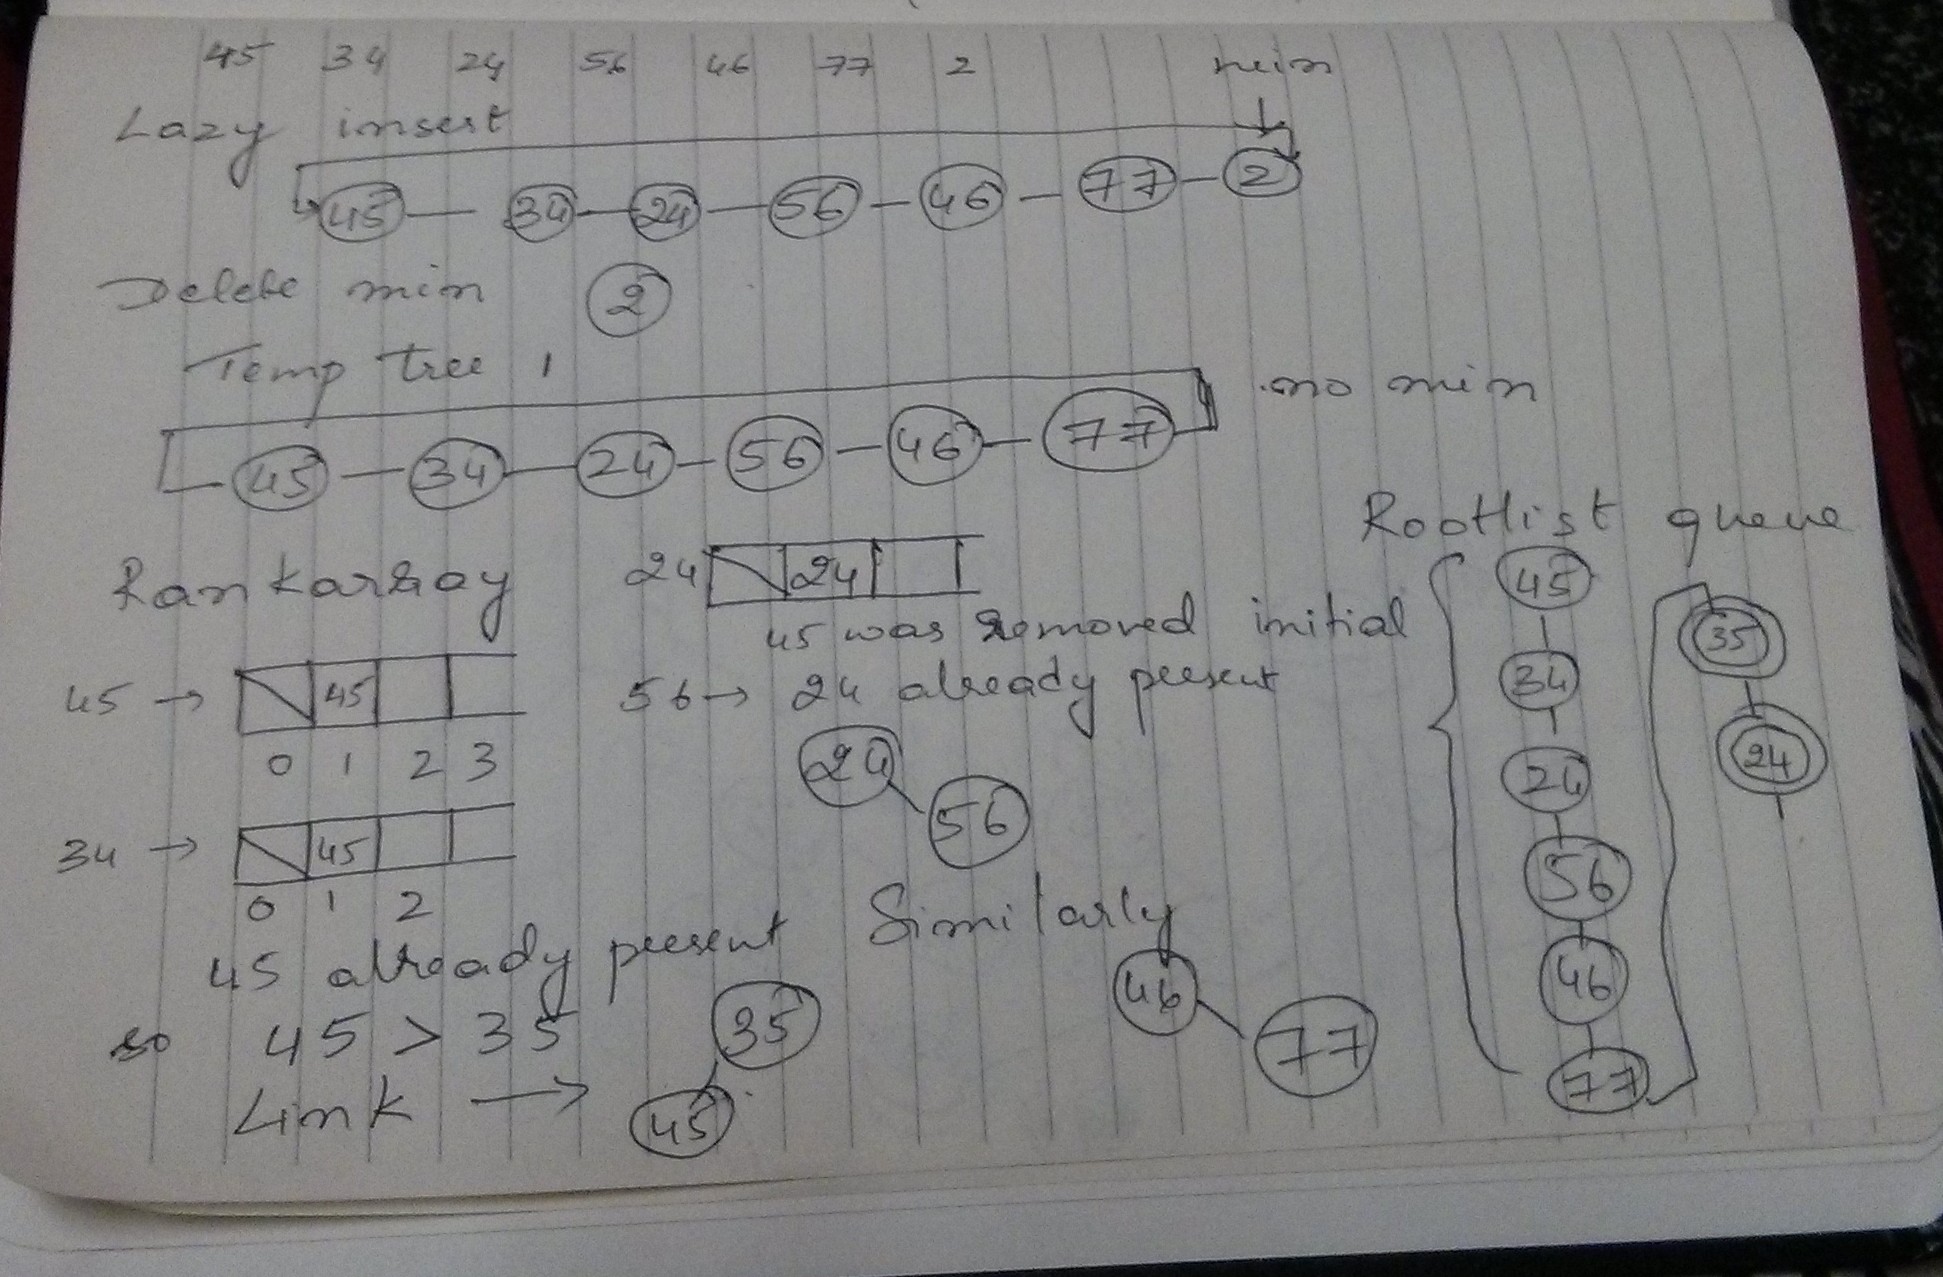 45 34 24 56 46 77 2 min
Lazy insert
45 34 24 56 46 77 2
Delete min 2
Temp tree 1
no min
45 34 24 56 46 77
Rankarray
45 → 45
0 1 2 3
34 → 45
0 1 2
45 already present
so 45 > 35
Link → 35
45
24 24
45 was removed initial
56 → 24 already present
24
56
Similarly
46
77
Rootlist queue
45
34
24
56
46
77
35
24